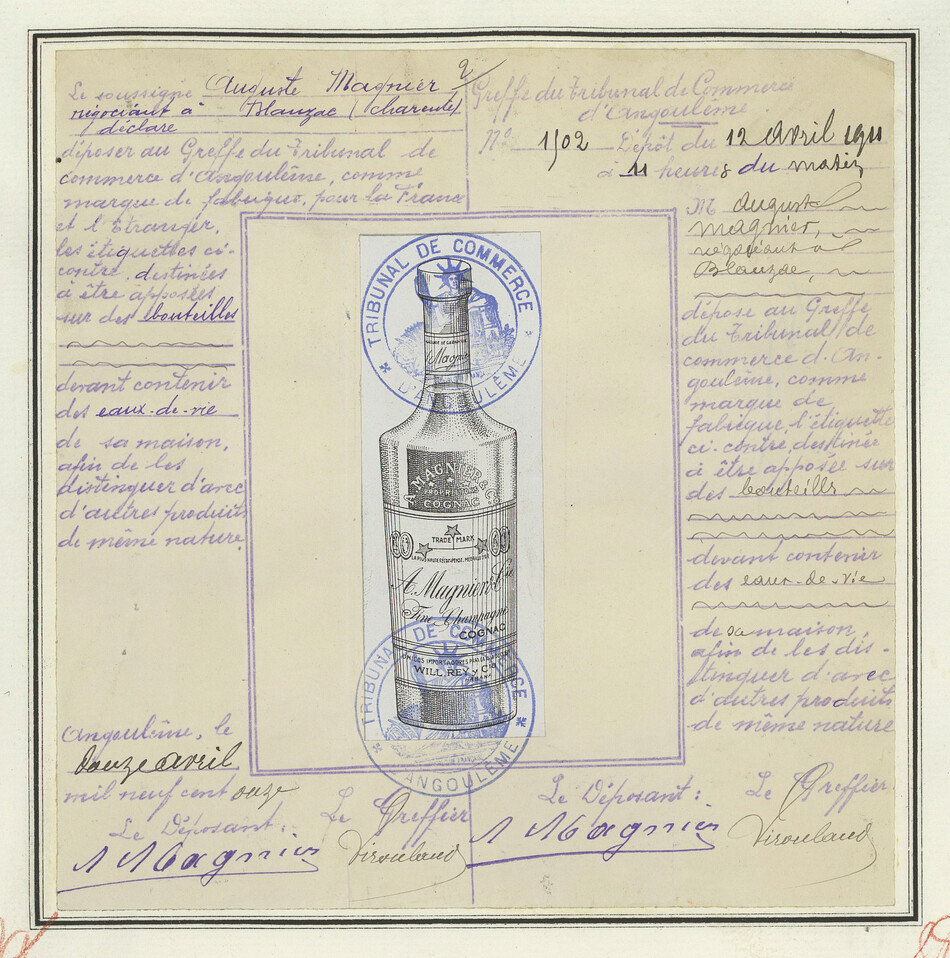 Le soussigné Auguste Magnier
négociant à Blanzac (Charente)
déclare
déposer au Greffe du Tribunal de
commerce d'Angoulême, comme
marque de fabrique, pour la France
et l'Etranger,
les étiquettes ci-
contre, destinées
à être apposées
sur des bouteilles
devant contenir
des eaux-de-vie
de sa maison,
afin de les
distinguer d'avec
d'autres produits
de même nature.
Angoulême, le
douze avril
mil neuf cent onze
Le Déposant:
A Magnier
Le Greffier
Virouland
2
Greffe du Tribunal de Commerce
d'Angoulême
No. 1502 Dépôt du 12 Avril 1911
à 11 heures du matin
M August
Magnier,
négociant à
Blanzac,
dépose au Greffe
du Tribunal de
commerce d'An-
goulême, comme
marque de
fabrique, l'étiquette
ci-contre, destinée
à être apposée sur
des bouteills
devant contenir
des eaux-de-vie
de sa maison,
afin de les dis-
tinguer d'avec
d'autres produits
de même nature
Le Déposant:
A Magnier
Le Greffier
Virouland
TRIBUNAL DE COMMERCE
D'ANGOULÊME
Magnier
A. MAGNIER & Co.
PROPRIETORS
COGNAC
TRADE MARK
A. Magnier & Cie
Fine Champagne
COGNAC
WILL. REY y Ca.
HABANA
TRIBUNAL DE COMMERCE
D'ANGOULÊME